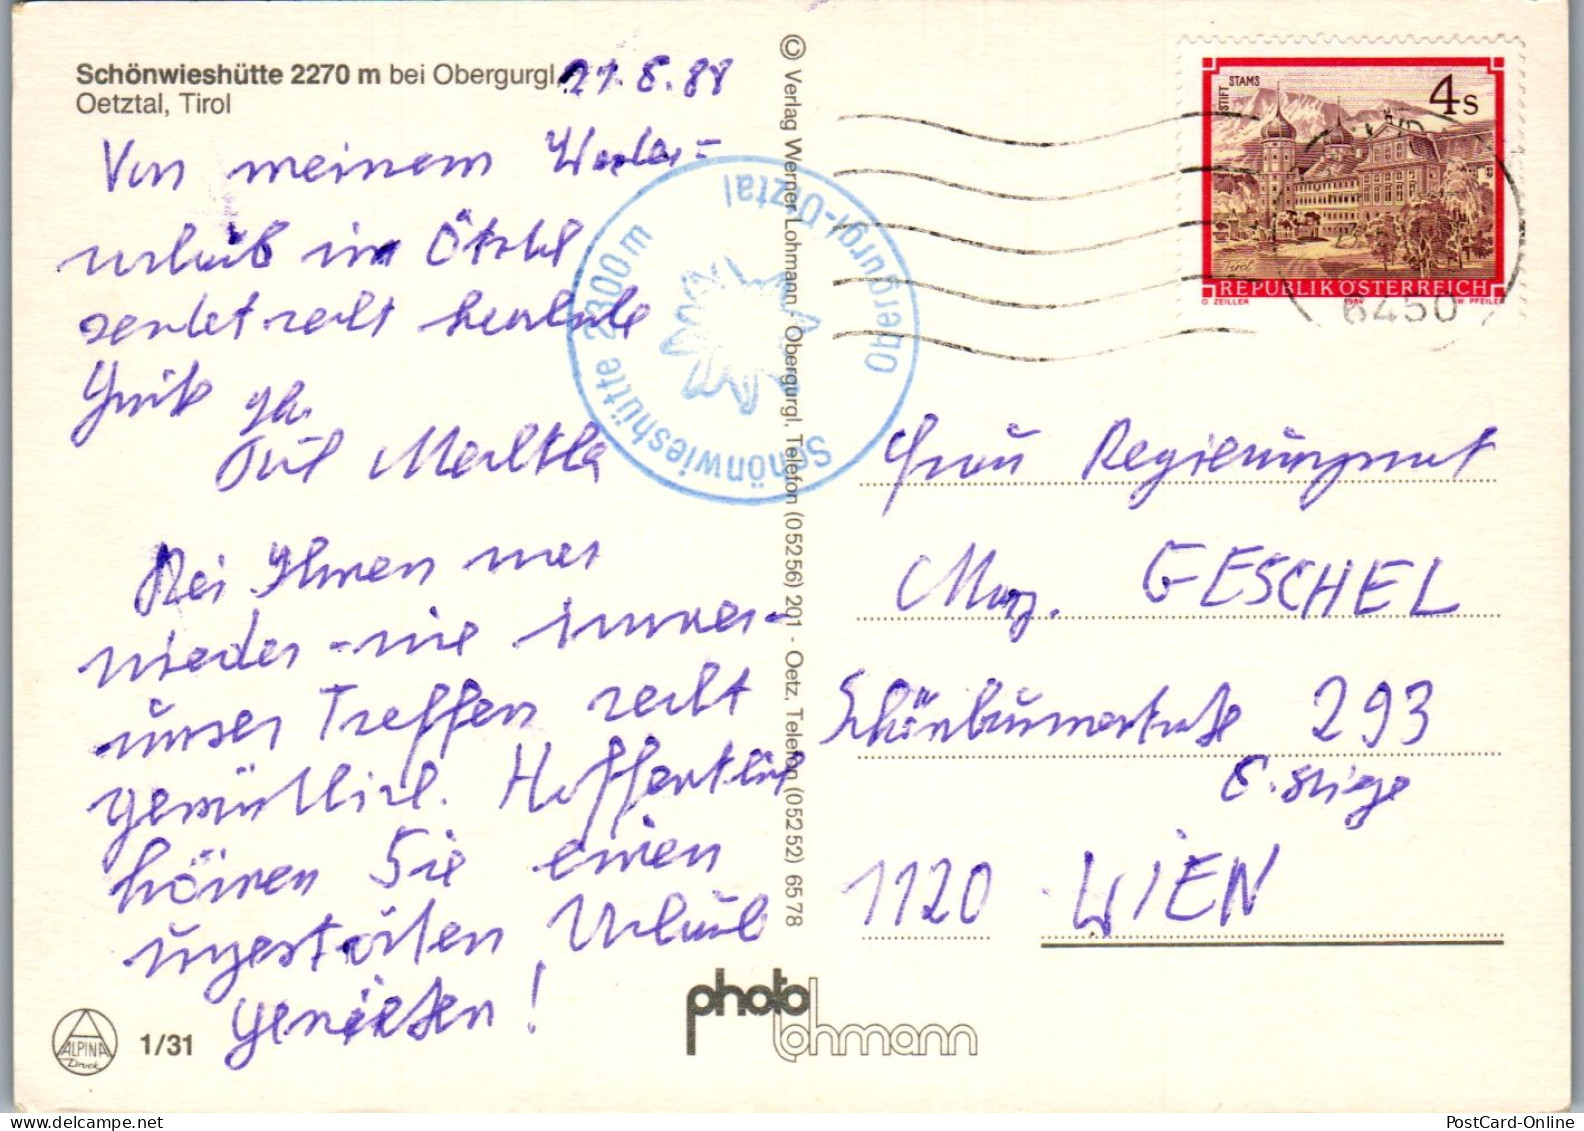 Schönwieshütte 2270 m bei Obergurgl,
Oetztal, Tirol
21.8.88
Von meinem Wander=
urlaub im Ötztal
sendet recht herzliche
Grüße
Ihre
Bei Ihnen war
wieder - wie immer -
unser Treffen recht
gemütlich. Hoffentlich
können Sie einen
ungestörten Urlaub
genießen!
ALPINA
Druck
1/31
© Verlag Werner Lohmann - Obergurgl, Telefon (05256) 201 - Oetz, Telefon (05252) 6578
Schönwieshütte 2300m
Obergurgl-Ötztal
STIFT STAMS
4s
Tirol
REPUBLIK ÖSTERREICH
O ZEILLER 1984 W. PFEILER
6450
Frau Regierungsrat
Mag. GESCHEL
Schönbrunnerstraße 293
6. Stiege
1120 WIEN
photo
lohmann
PostCard-Online